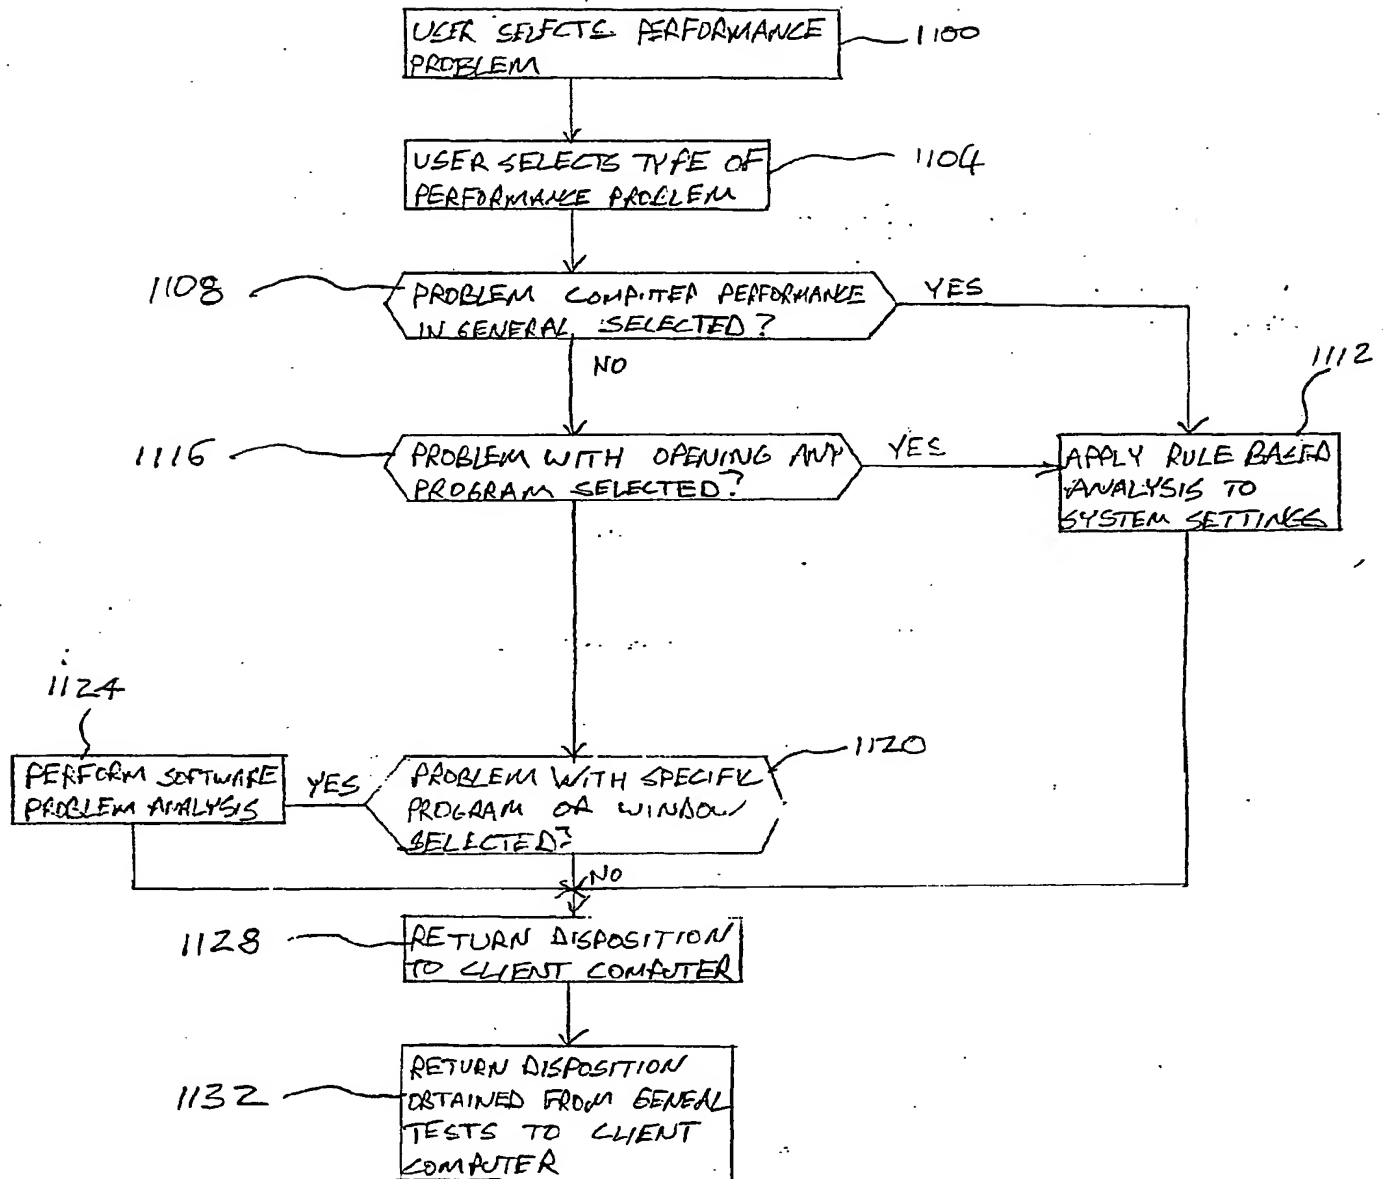 USER SELECTS PERFORMANCE
PROBLEM
1100
USER SELECTS TYPE OF
PERFORMANCE PROBLEM
1104
1108
PROBLEM COMPUTER PERFORMANCE
IN GENERAL SELECTED?
YES
NO
1112
1116
PROBLEM WITH OPENING ANY
PROGRAM SELECTED?
YES
APPLY RULE BASED
ANALYSIS TO
SYSTEM SETTINGS
1124
1120
PERFORM SOFTWARE
PROBLEM ANALYSIS
YES
PROBLEM WITH SPECIFIC
PROGRAM OR WINDOW
SELECTED?
NO
1128
RETURN DISPOSITION
TO CLIENT COMPUTER
1132
RETURN DISPOSITION
OBTAINED FROM GENEAL
TESTS TO CLIENT
COMPUTER